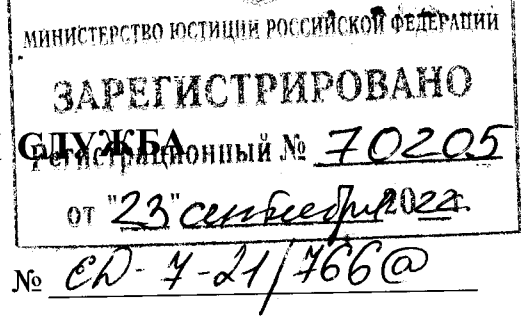 МИНИСТЕРСТВО ЮСТИЦИИ РОССИЙСКОЙ ФЕДЕРАЦИИ
ЗАРЕГИСТРИРОВАНО
СЛУЖБА
Регистрационный № 70205
от "23" сентября 2022г.
№ ЕД-7-21/766@